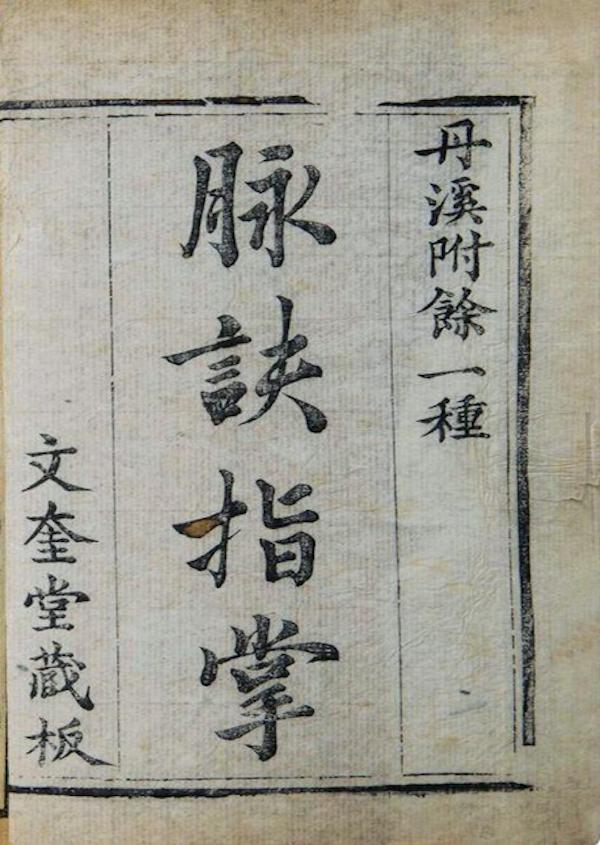 丹溪附餘一種
脉訣指掌
文奎堂藏板